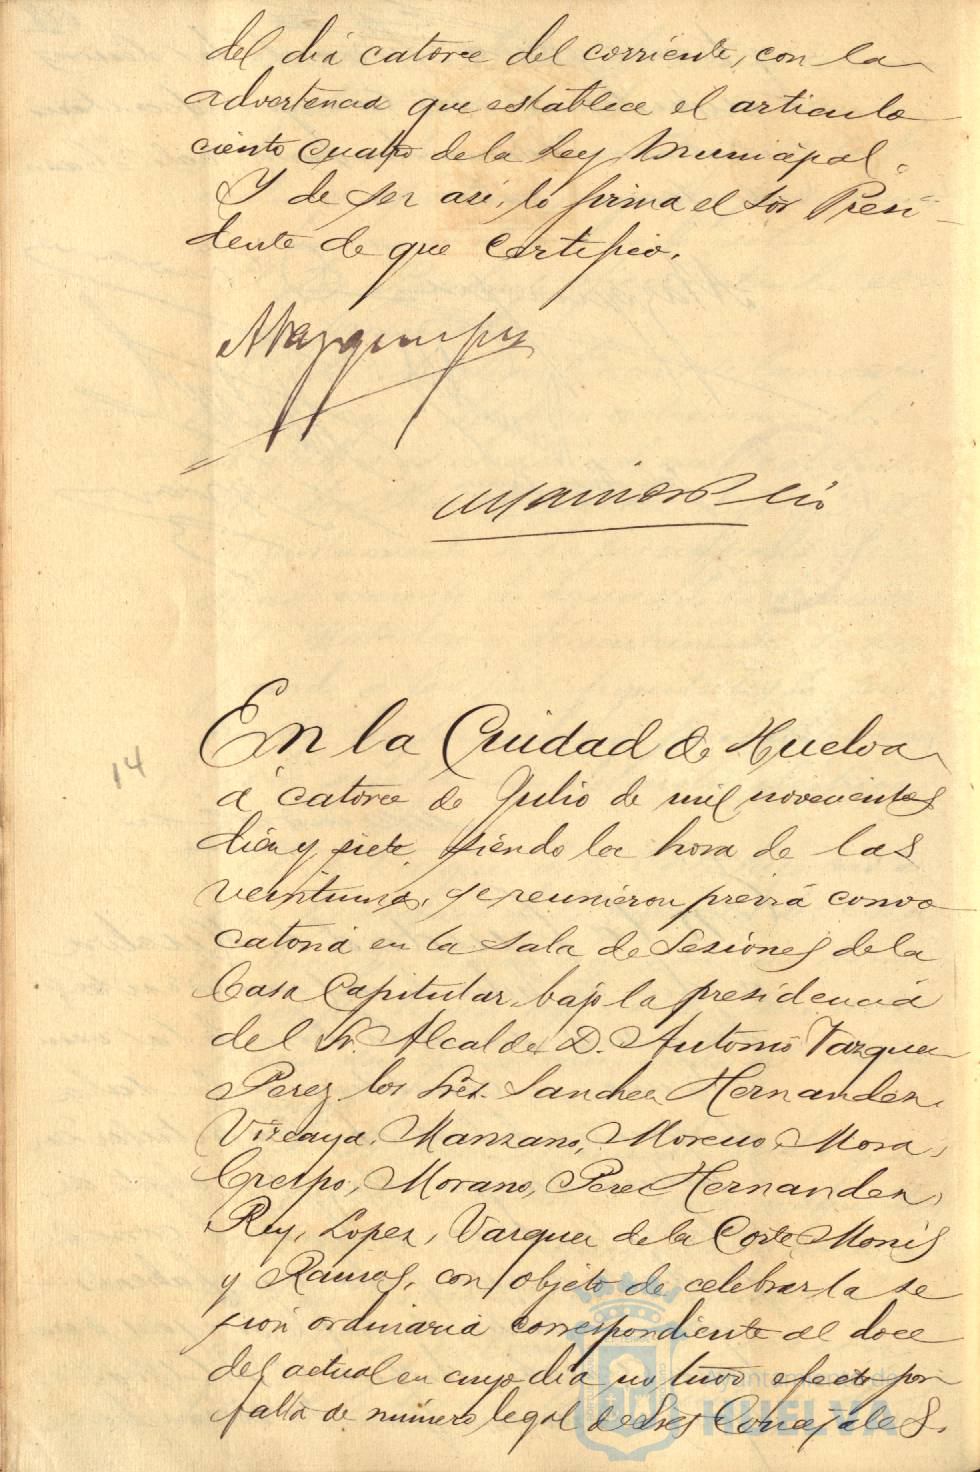 del dia catorce del corriente, con la
advertencia que establece el articulo
ciento cuatro de la Ley Municipal.
Y de ser asi, lo firma el Sor Presi-
dente de que certifico.
14
En la Ciudad de Huelva
á catorce de Julio de mil novecientos
diez y siete, siendo la hora de las
veintiuna, se reunieron previa convo
catoria en la Sala de Sesiones de la
Casa Capitular, bajo la presidencia
del Sr. Alcalde D. Antonio Vazquez
Perez, los Sres. Sanchez Hernandez,
Vizcaya, Manzano, Moreno, Mora,
Crespo, Morano, Perez Hernandez,
Rey, Lopez, Vazquez de la Corte, Monis
y Ramos, con objeto de celebrar la se
sion ordinaria correspondiente al doce
del actual en cuyo dia no tuvo efecto por
falta de numero legal de Sres Concejales.
HUELVA